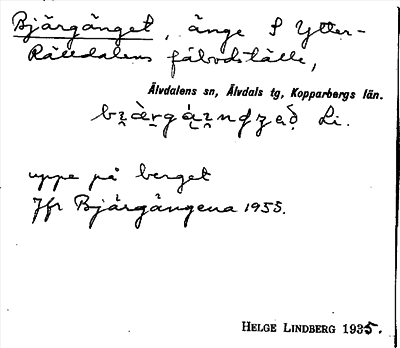 Bjärgänget, änge S Ytter-
Rälldalens fäbodställe,
Älvdalens sn, Älvdals tg, Kopparbergs län.
Li.
uppe på berget
Jfr Bjärgängena 1955.
HELGE LINDBERG 1935.